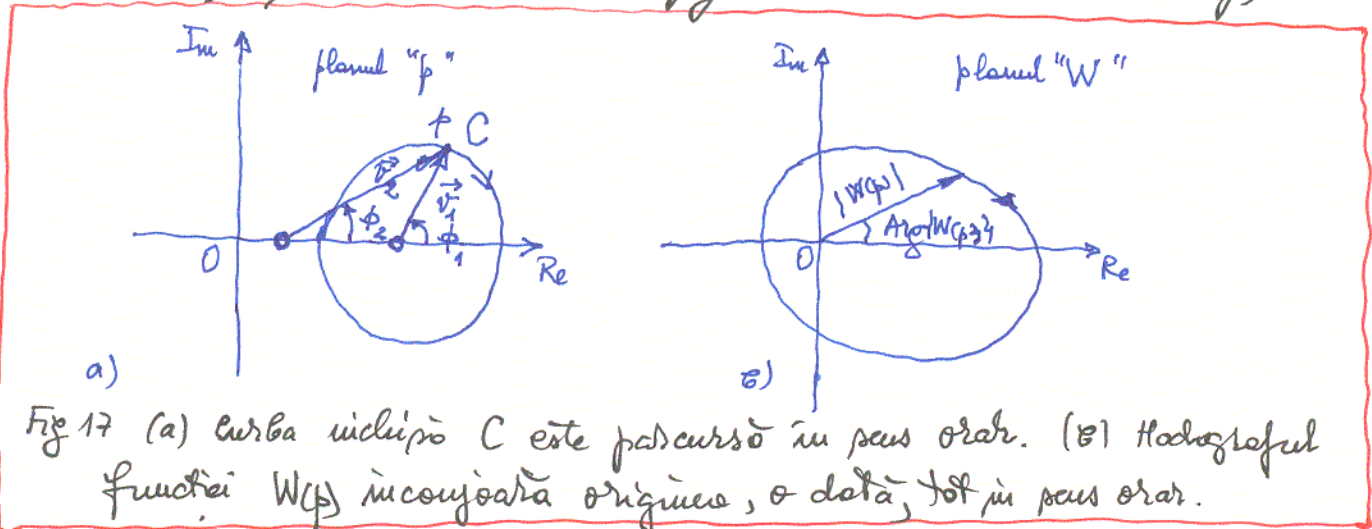 Im planul "p"
Im planul "W"
p C
v⃗2 v⃗1
ϕ2 ϕ1
O Re
|W(p)|
Arg{W(p)}
O Re
a)
b)
Fig 17 (a) Curba inchisă C este parcursă în sens orar. (b) Hodograful
funcției W(p) inconjoară originea, o dată, tot in sens orar.